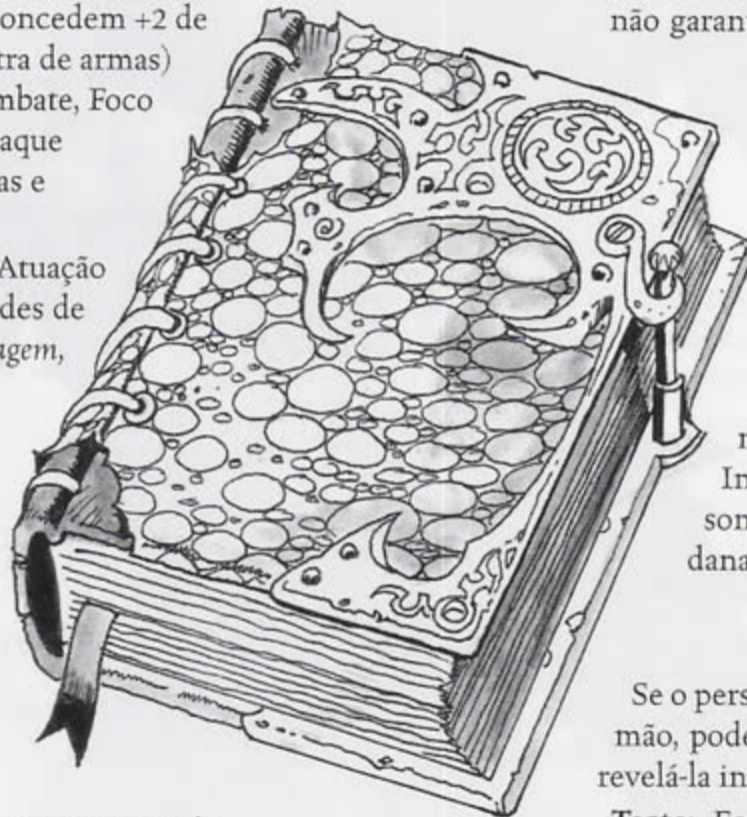 oncedem +2 de
tra de armas)
mbate, Foco
aque
as e
Atuação
des de
agem,
não garan
In
son
dana
Se o pers
mão, pode
revelá-la in